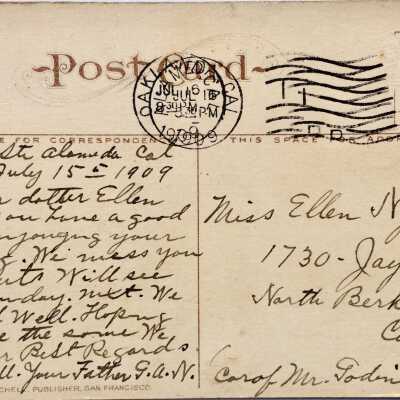 Post Card
OAKLAND, CAL.
JUL 16
8 30 PM
1909
E FOR CORRESPONDEN
THIS SPACE FOR ADDR
St. Alameda Cal
July 15 1909
r dotter Ellen
ou have a good
njoying your
We miss you
Will see
nday. next. We
Well. Hoping
e the some We
r Best Regards.
ll. Your Father G. A. N.
Miss Ellen N
1730 - Jay
North Berk
Ca
car of Mr. Godin
CHELL, PUBLISHER, SAN FRANCISCO.